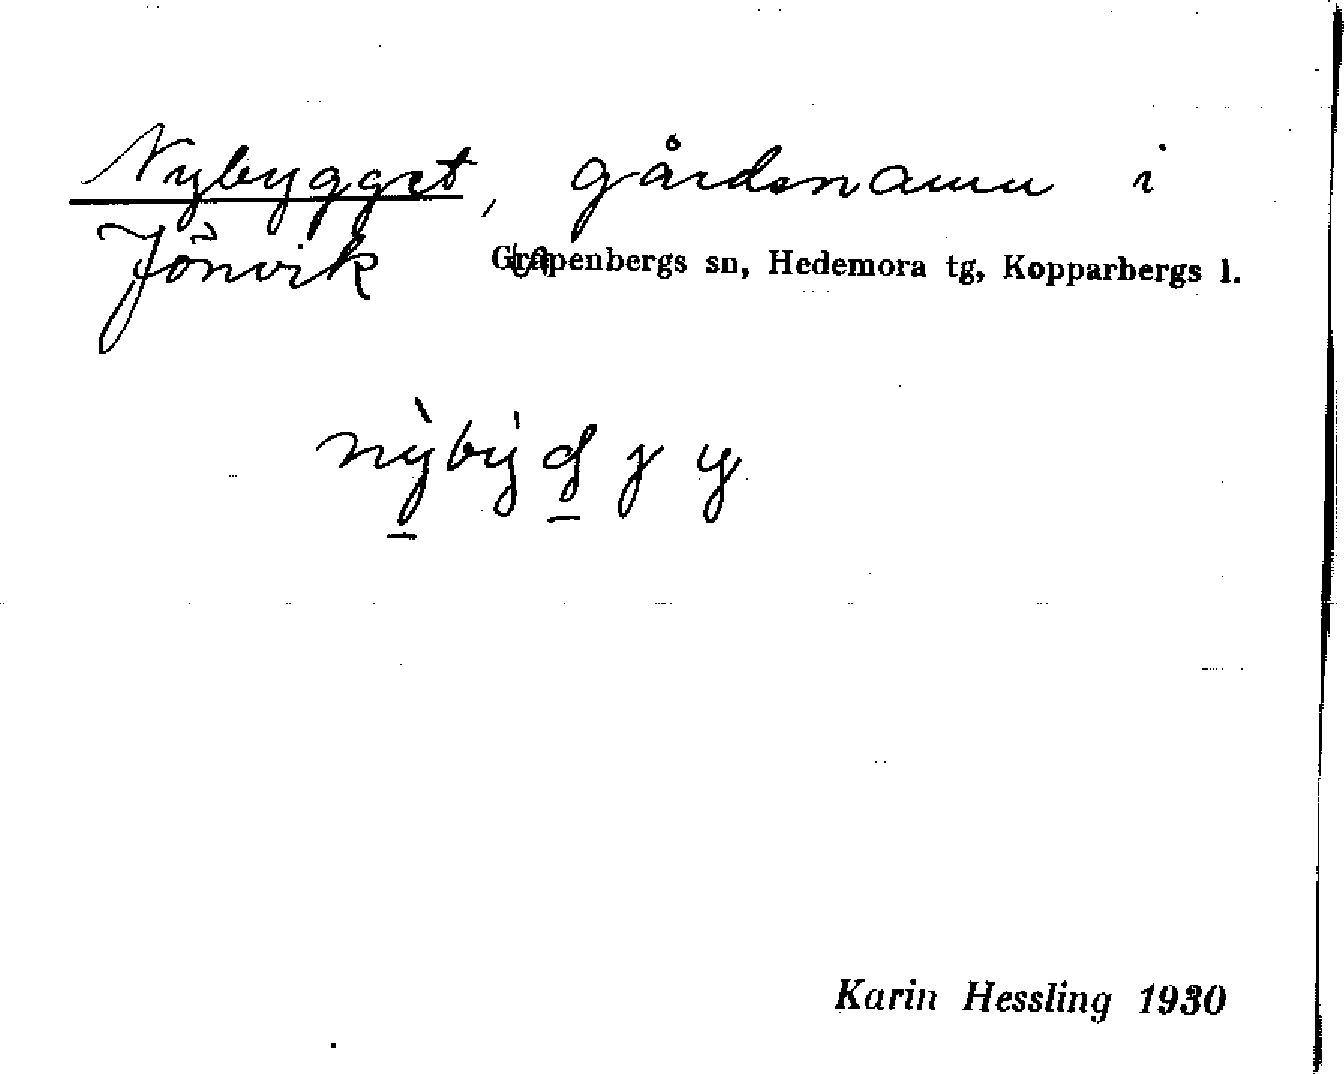 Nybygget, gårdsnamn i
Jönvik Garpenbergs sn, Hedemora tg, Kopparbergs l.
Karin Hessling 1930